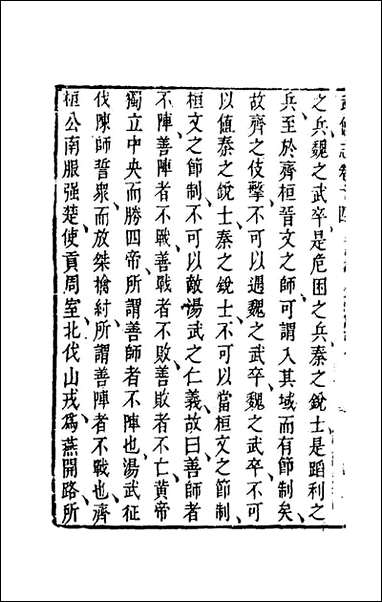 之兵魏之武卒是危困之兵秦之銳士是蹈利之
兵至於齊桓晉文之師可謂入其域而有節制矣
故齊之伎擊不可以遇魏之武卒魏之武卒不可
以值秦之銳士秦之銳士不可以當桓文之節制
桓文之節制不可以敵湯武之仁義故曰善師者
不陣善陣者不戰善戰者不敗善敗者不亡黃帝
獨立中央而勝四帝所謂善師者不陣也湯武征
伐陳師誓衆而放桀擒紂所謂善陣者不戰也齊
桓公南服强楚使貢周室北伐山戎爲燕開路所